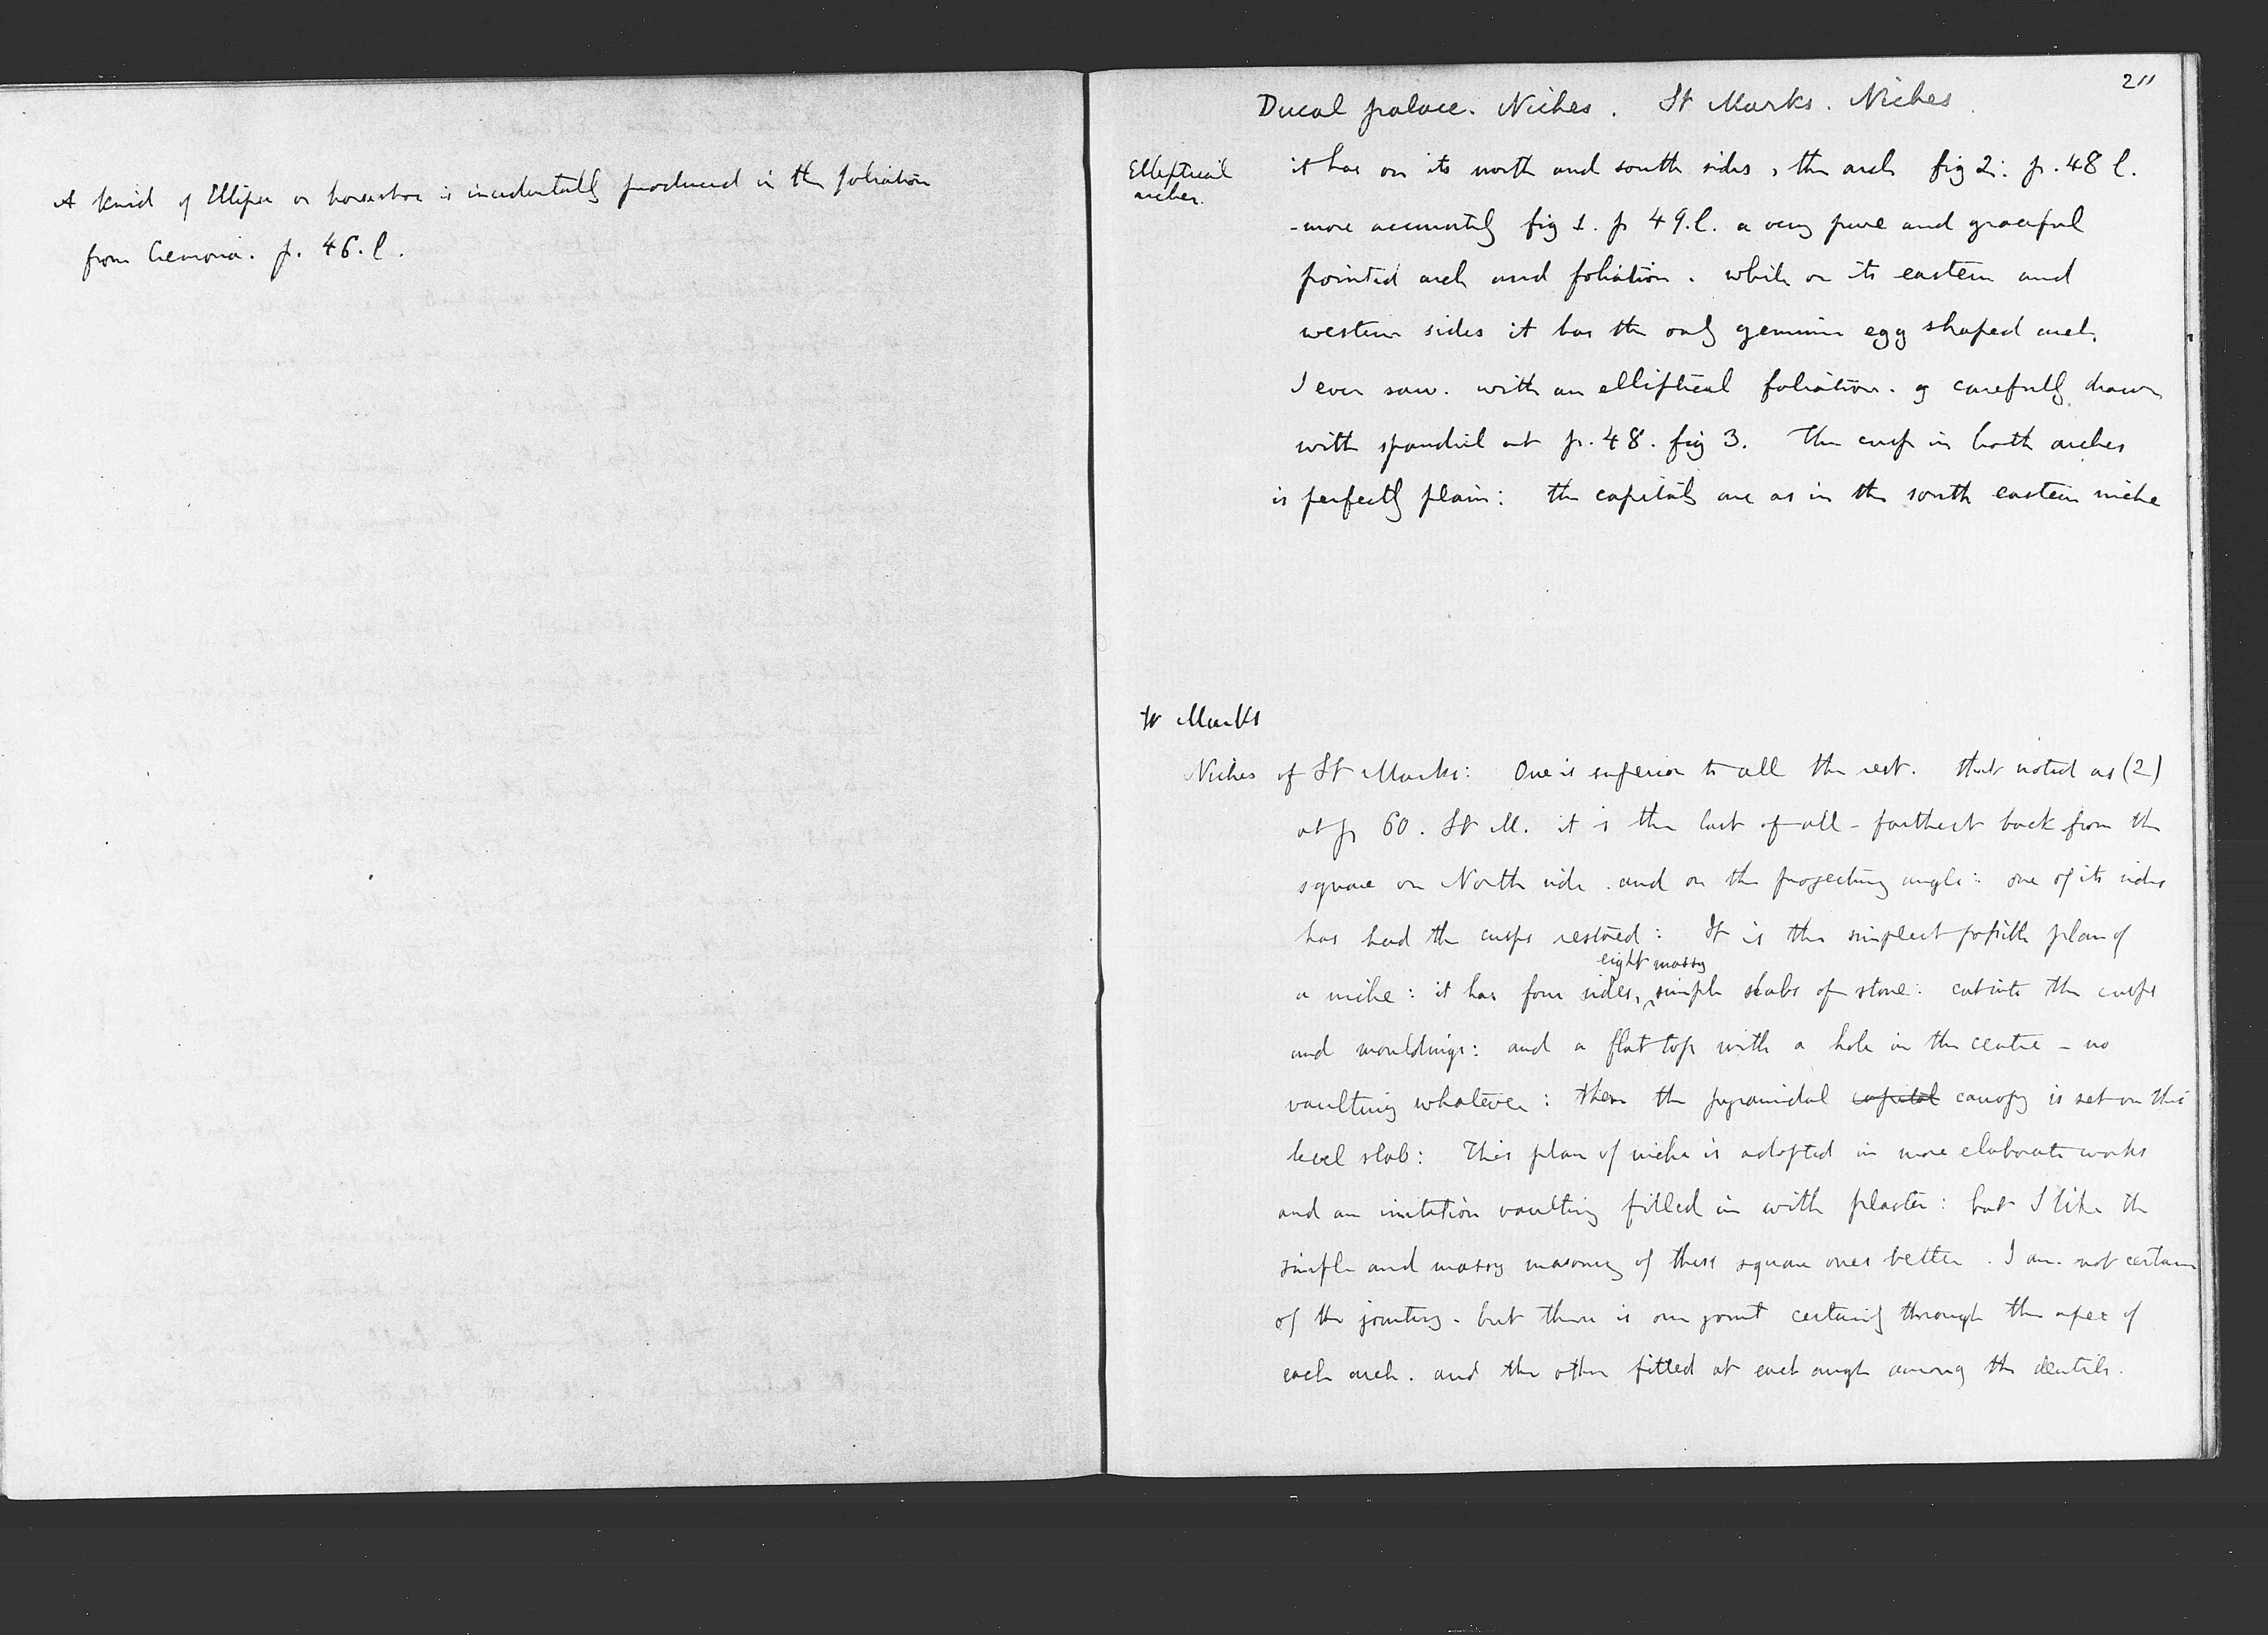 A kind of Ellipse or horseshoe is incidentally produced in the foliation
from Cremona. p. 46. l.
211
Ducal palace. Niches. St Marks. Niches.
Elliptical
arches.
it has on its north and south sides, the arch fig 2: p. 48 l.
- more accurately fig 1. p 49. l. a very pure and graceful
pointed arch and foliation. while on its eastern and
western sides it has the only genuine egg shaped arch.
I ever saw. with an elliptical foliation. carefully drawn
with spandril at p. 48. fig 3. The cusp in both arches
is perfectly plain: the capitals are as in the south eastern niche
St Marks
Niches of St Marks: One is superior to all the rest. that noted as (2)
at p 60. St M. it is the last of all - farthest back from the
square on North side. and on the projecting angle: one of its sides
has had the cusps restored: It is the simplest possible plan of
eight massy
a niche: it has four sides, simple slabs of stone: cut into the cusps
and mouldings: and a flat top with a hole in the centre - no
vaulting whatever: then the pyramidal capital canopy is set on this
level slab: This plan of niche is adopted in more elaborate works
and an imitation vaulting filled in with plaster: but I like the
simple and massy masonry of these square ones better. I am not certain
of the jointing. but there is one joint certainly through the apex of
each arch. and the other fitted at each angle among the dentils.